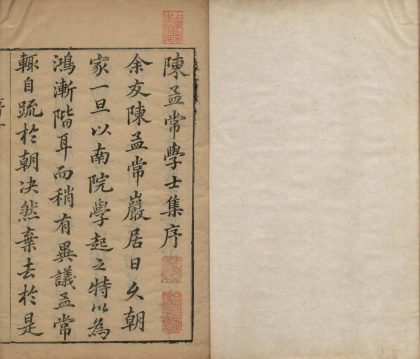 陳孟常學士集序
余友陳孟常巖居日久朝
家一旦以南院學起之特以為
鴻漸階耳而稍有異議孟常
輙自疏於朝决然棄去於是
序一